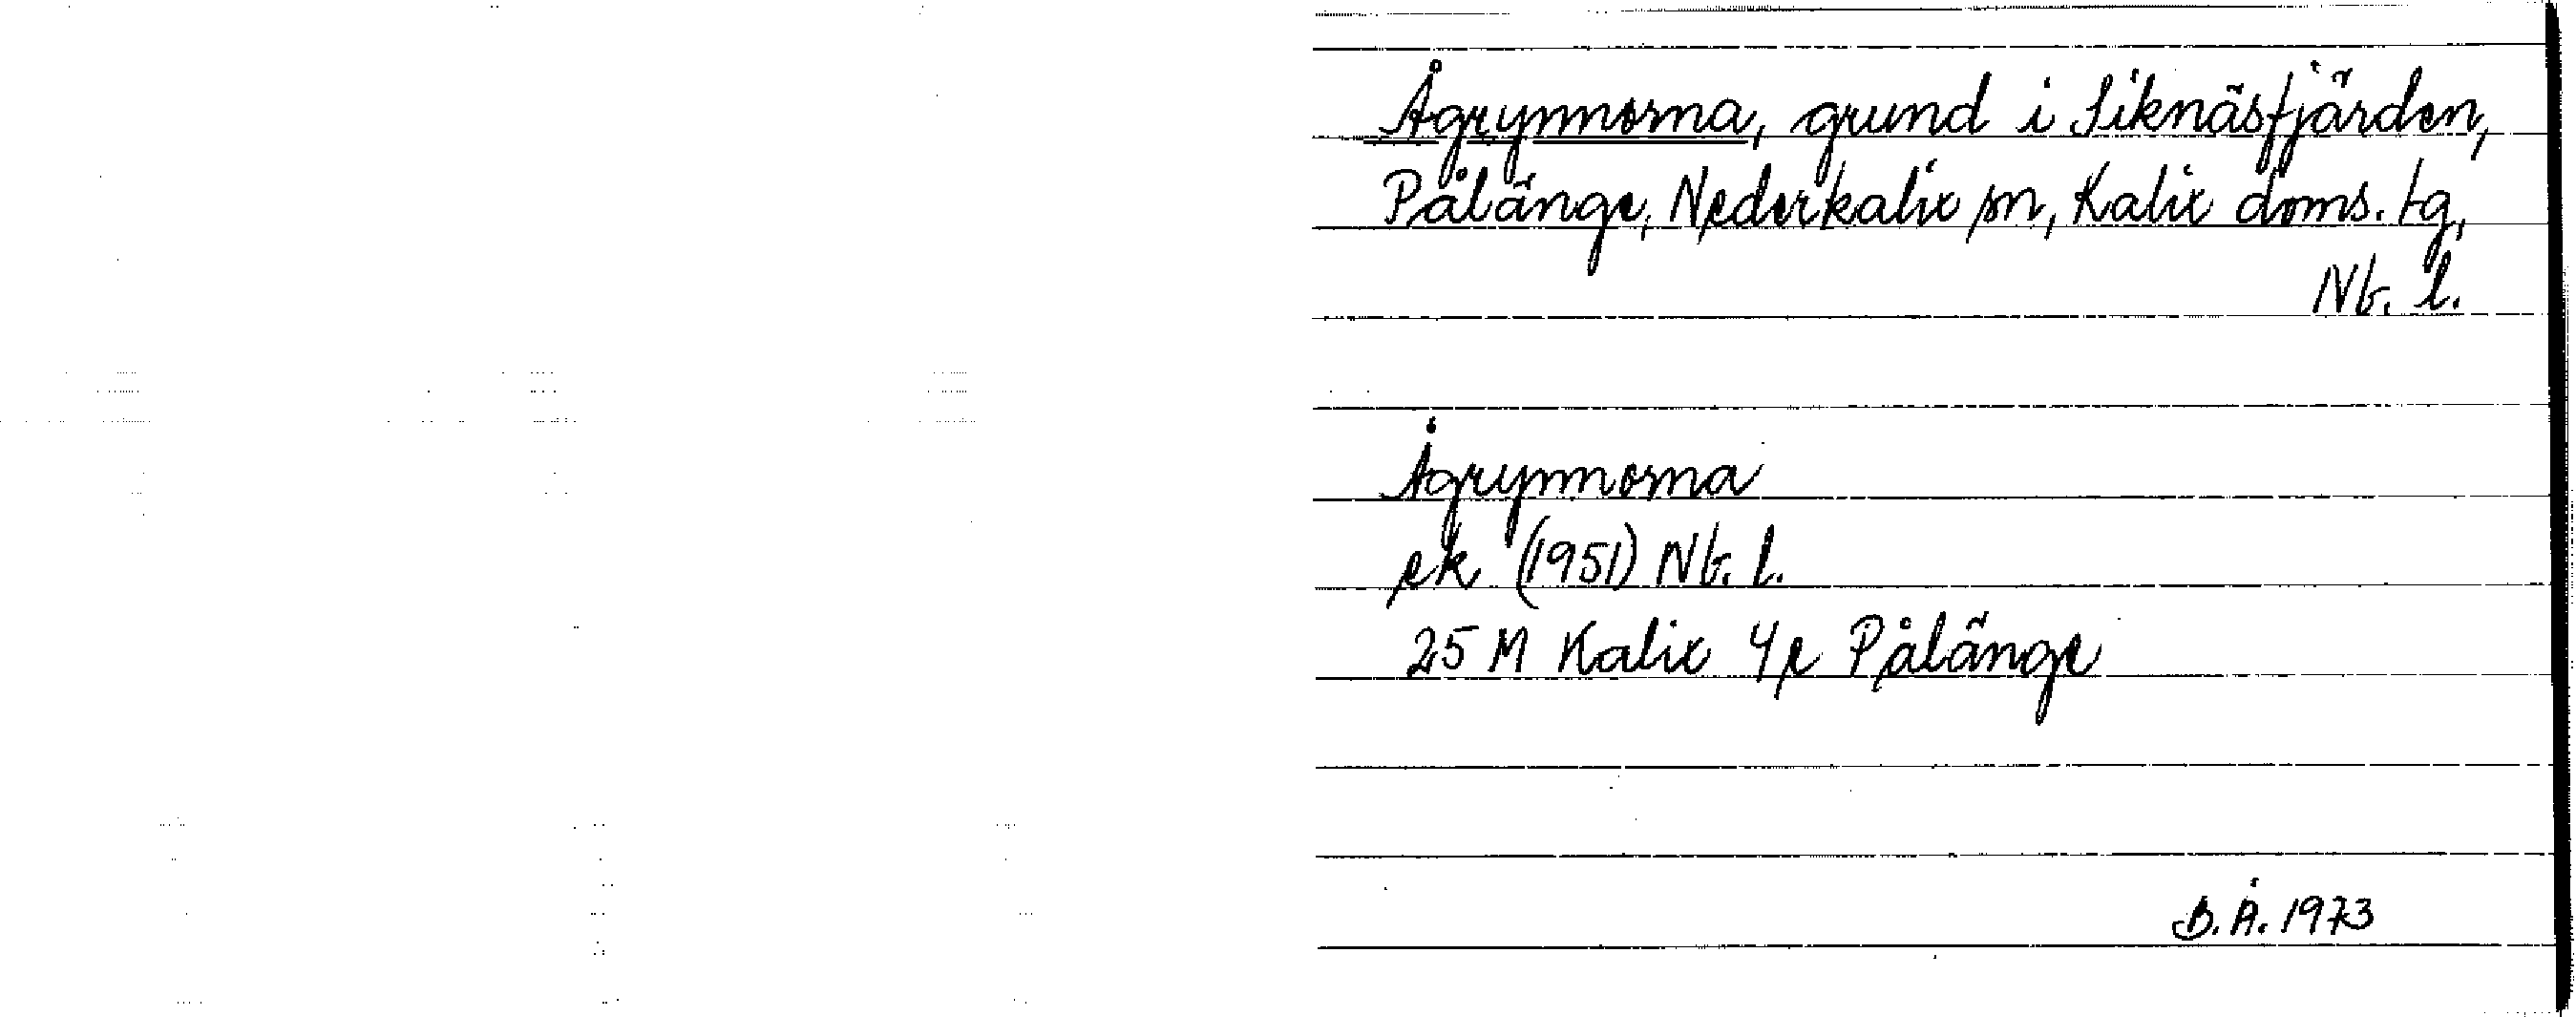 Ågrynnorna, grund i Siknäsfjärden,
Pålänge, Nederkalix sn, Kalix doms. tg,
Nb. l.
Ågrynnorna
ek (1951) Nb. l.
25 M Kalix 4e Pålänge
B.Å. 1973